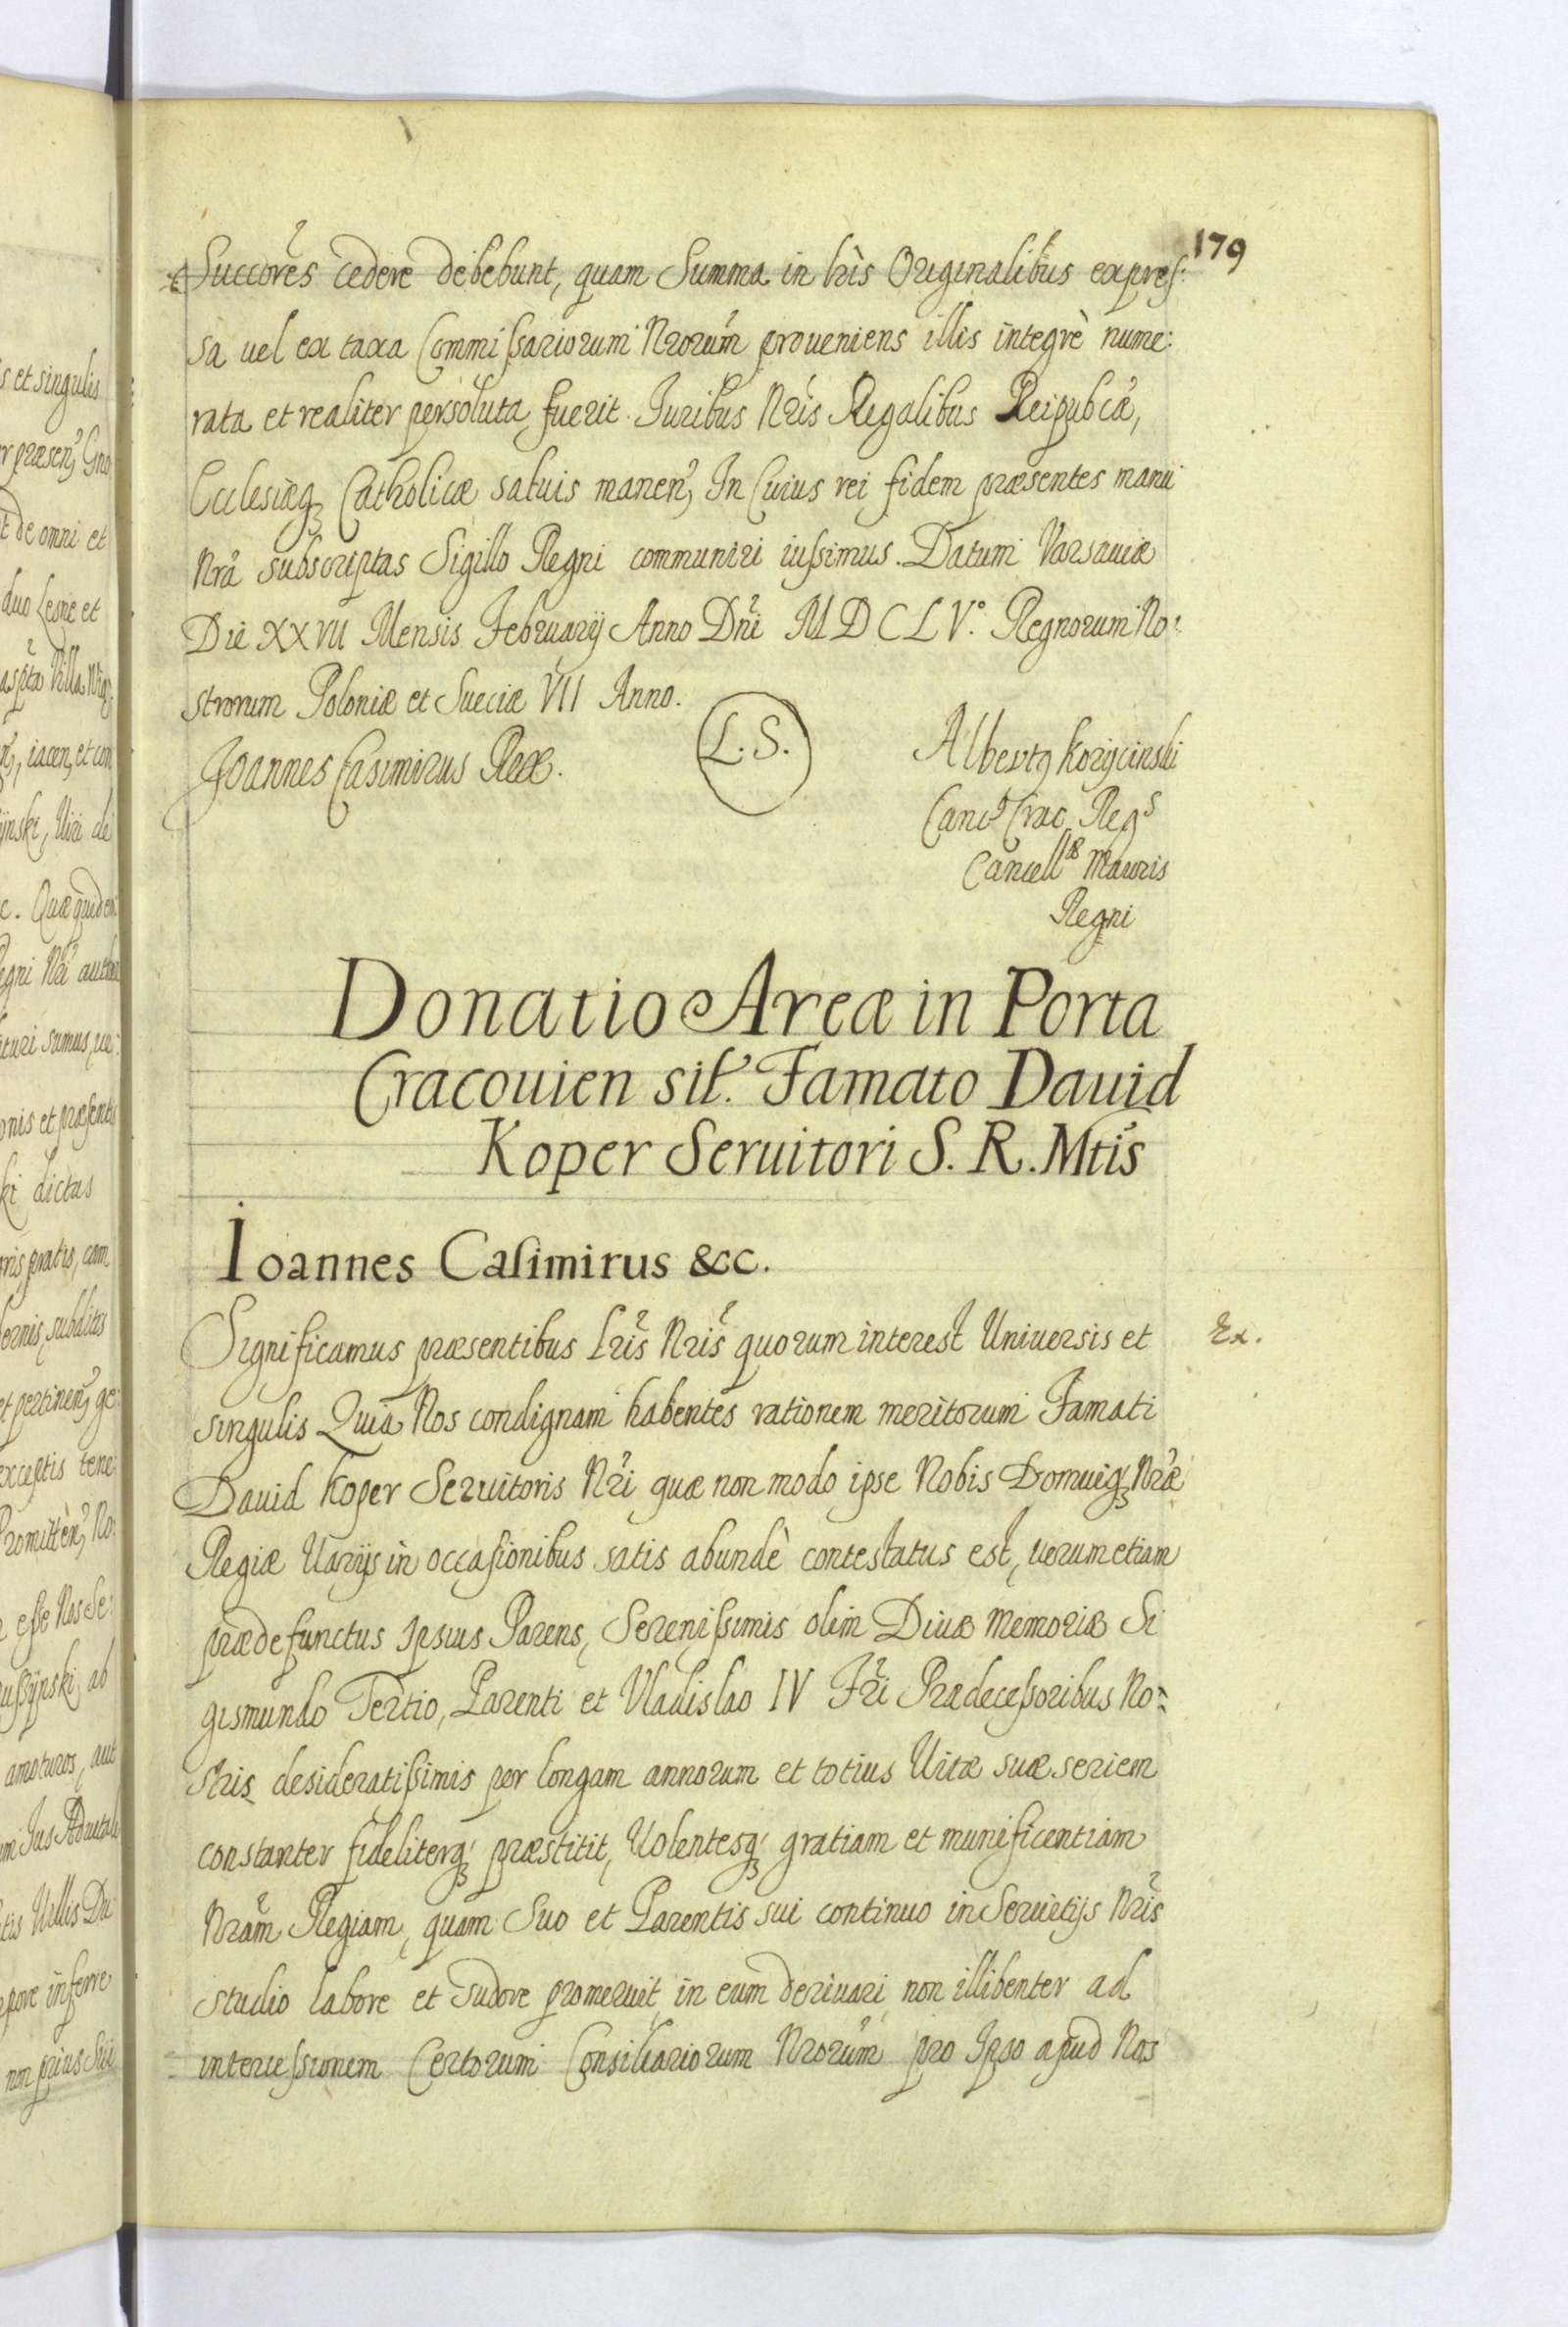 179
Succores cedere debebunt, quam Summa in lris Originalibus expres:
sa uel ex taxa Commissariorum Nrorum proueniens illis integrè nume:
rata et realiter persoluta fuerit. Iuribus Nris Regalibus Reipubcæ,
Ecclesiæq; Catholicæ saluis manen, In Cuius rei fidem præsentes manu
Nra subscriptas Sigillo Regni communiri iussimus. Datum Varsauiæ
Die XXVII Mensis February Anno Dni MDCLV.° Regnorum No:
strorum Poloniæ et Sueciæ VII Anno.
Joannes Casimirus Rex.
L. S.
Albertq Korycinski
Canc Crac Regs
Cancell Maioris
Regni
Donatio Areæ in Porta
Cracouien sit. Famato Dauid
Koper Seruitori S. R. Mtis
Ioannes Casimirus &cc.
Significamus præsentibus Lris Nris quorum interest Uniuersis et
Ex.
singulis Quia Nos condignam habentes rationem meritorum Famati
Dauid Koper Seruitoris Nri quæ non modo ipse Nobis Domuiq; Nræ
Regiæ Uarijs in occasionibus satis abundè contestatus est, uerum etiam
prædefunctus Ipsius Parens, Serenissimis olim Diuæ Memoriæ Si
gismundo Tertio, Parenti et Vladislao IV Fri Prædecessoribus No:
stris desideratissimis per longam annorum et totius Uitæ suæ seriem
constanter fideliterq; præstitit, Uolentesq; gratiam et munificentiam
Nram Regiam, quam Suo et Parentis sui continuo in Seruitijs Nris
studio labore et Sudore promeruit, in eum deriuari non illibenter ad
intercessionem Certorum Consiliariorum Nrorum pro Ipso apud Nos